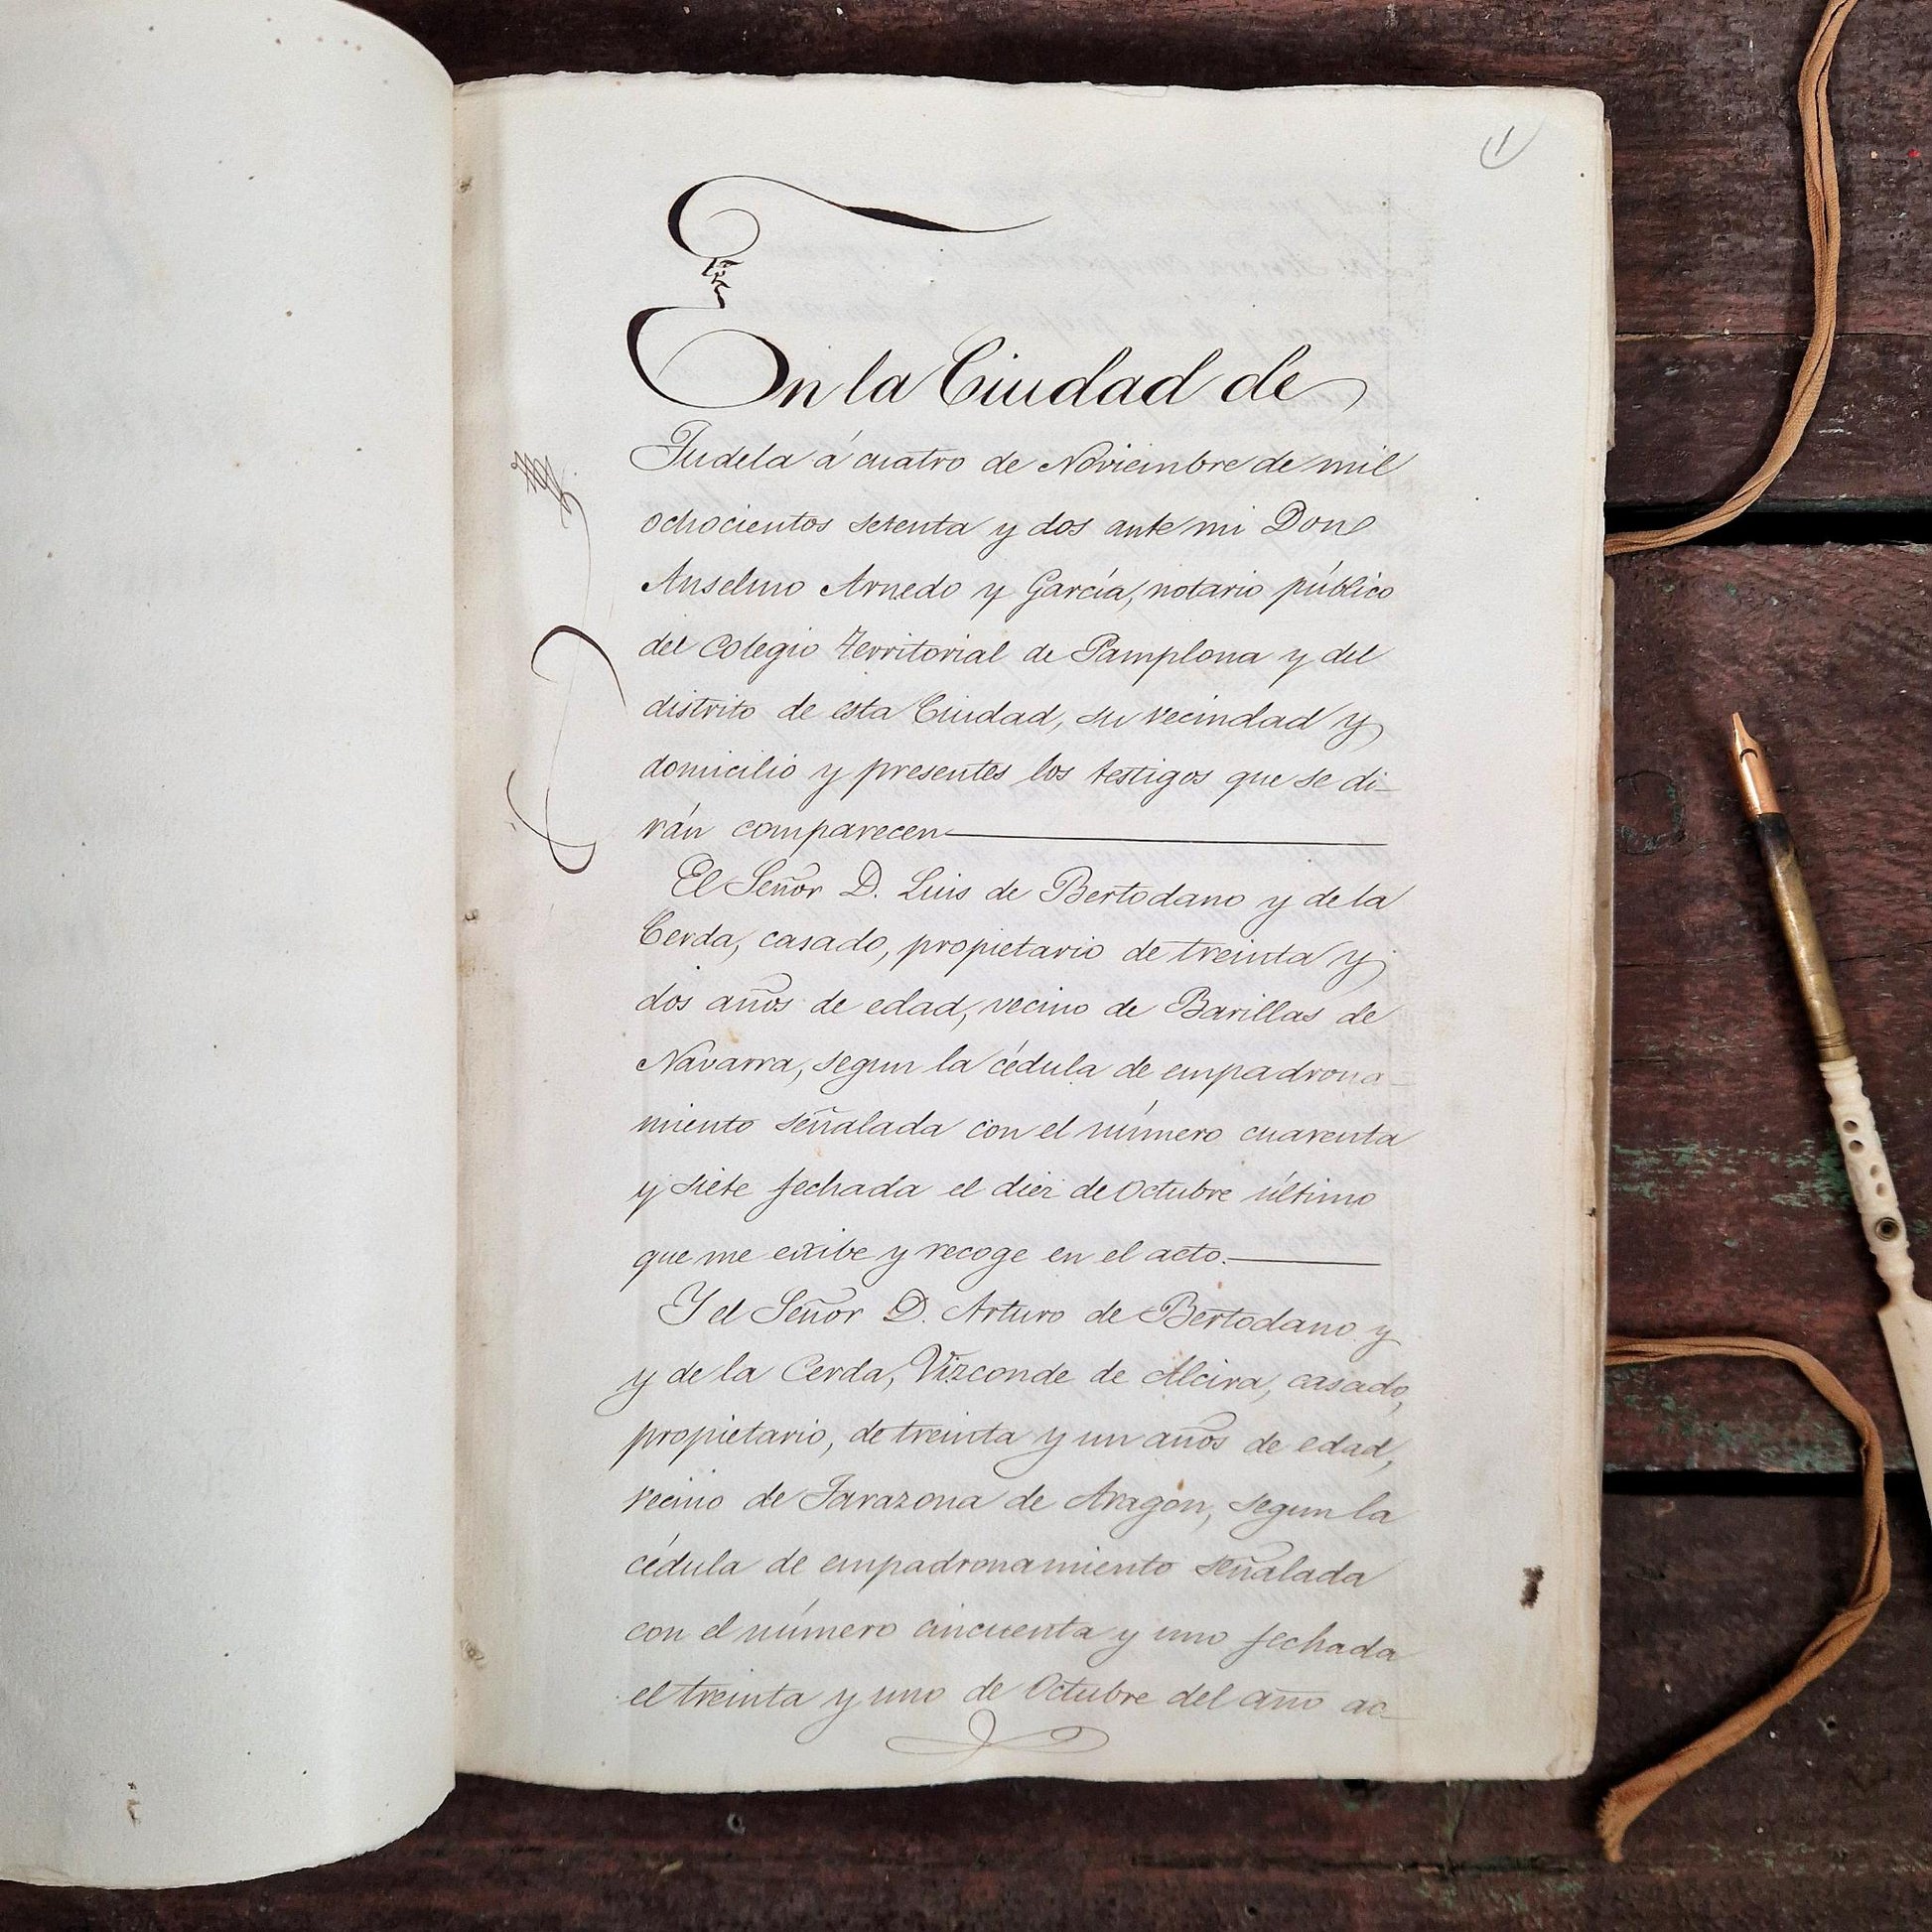 1
En la Ciudad de
Tudela á cuatro de Noviembre de mil
ochocientos setenta y dos ante mi Don
Anselmo Arnedo y García, notario público
del Colegio Territorial de Pamplona y del
distrito de esta Ciudad, su vecindad y
domicilio y presentes los testigos que se di-
rán comparecen
El Señor D. Luis de Bertodano y de la
Cerda, casado, propietario de treinta y
dos años de edad, vecino de Barillas de
Navarra, segun la cédula de empadrona-
miento señalada con el número cuarenta
y siete fechada el diez de Octubre último
que me exibe y recoge en el acto.
Y el Señor D. Arturo de Bertodano y
y de la Cerda, Vizconde de Alcira, casado,
propietario, de treinta y un años de edad,
vecino de Tarazona de Aragon, segun la
cédula de empadronamiento señalada
con el número cincuenta y uno fechada
el treinta y uno de Octubre del año ac-